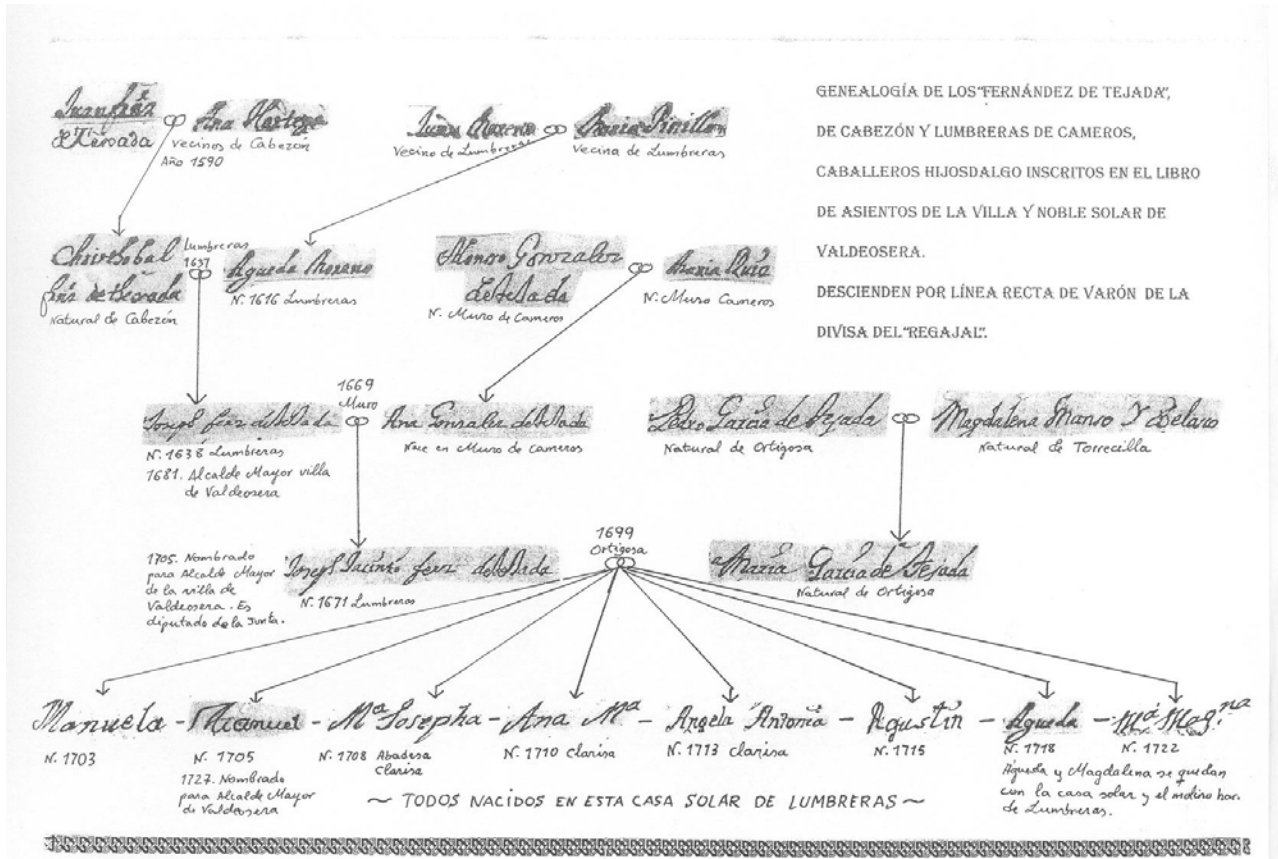 GENEALOGÍA DE LOS "FERNÁNDEZ DE TEJADA",
DE CABEZÓN Y LUMBRERAS DE CAMEROS,
CABALLEROS HIJOSDALGO INSCRITOS EN EL LIBRO
DE ASIENTOS DE LA VILLA Y NOBLE SOLAR DE
VALDEOSERA.
DESCIENDEN POR LÍNEA RECTA DE VARÓN DE LA
DIVISA DEL "REGAJAL".
Ana
Vecinos de Cabezón
Año 1590
Juan Moreno
Vecino de Lumbreras
Maria Pinillos
Vecina de Lumbreras
Christhobal
Natural de Cabezón
Lumbreras
1637
Agueda Moreno
N. 1616 Lumbreras
Alonso Gonzalez
N. Muro de Cameros
Maria Ruiz
N. Muro Cameros
Joseph
N. 1638 Lumbreras
1681. Alcalde Mayor villa
de Valdeosera
1669
Muro
Ana Gonzalez
Nace en Muro de Cameros
Pedro Garcia de Tejada
Natural de Ortigosa
Magdalena Manso Y
Natural de Torrecilla
1705. Nombrado
para Alcalde Mayor
de la villa de
Valdeosera. Es
diputado de la Junta.
Joseph Jacinto
N. 1671 Lumbreras
1699
Ortigosa
Maria Garcia de Tejada
Natural de Ortigosa
Manuela - Manuel - Mª Josepha - Ana Mª - Angela Antonia - Agustín - Agueda - Mª Magna
N. 1703
N. 1705
1727. Nombrado
para Alcalde Mayor
de Valdeosera
N. 1708 Abadesa
Clarisa
N. 1710 Clarisa
N. 1713 Clarisa
N. 1715
N. 1718
N. 1722
Águeda y Magdalena se quedan
con la casa solar y el molino har.
de Lumbreras.
~ TODOS NACIDOS EN ESTA CASA SOLAR DE LUMBRERAS ~